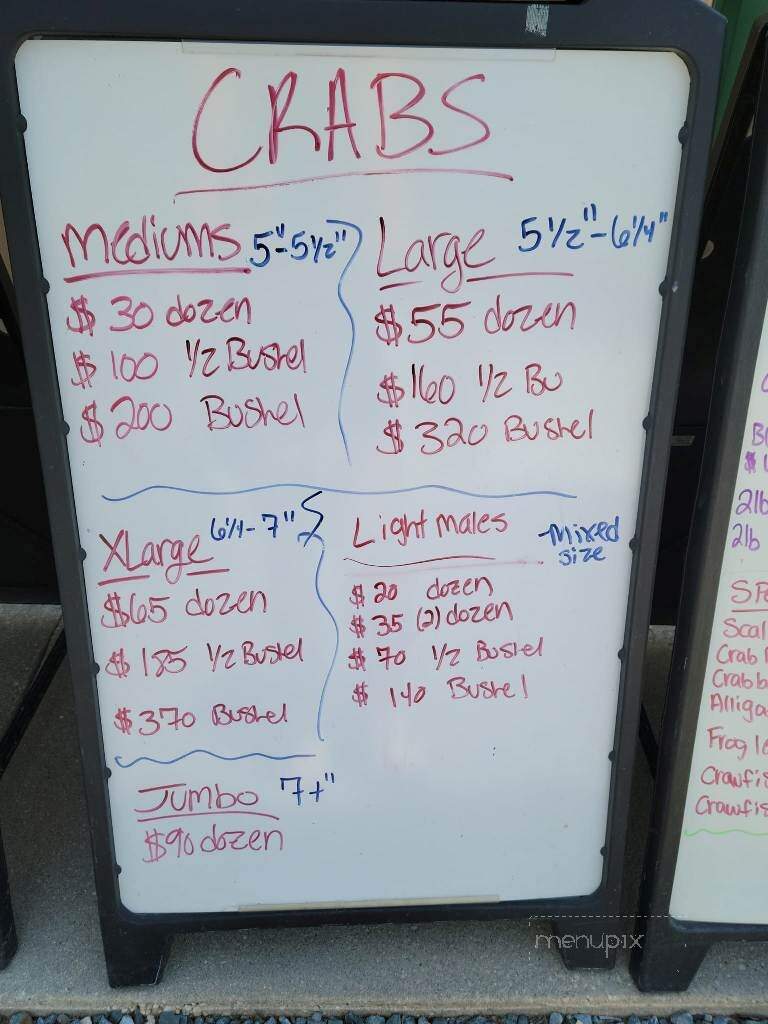 CRABS
Mediums 5"-5 1/2"
$ 30 dozen
$ 100 1/2 Bushel
$ 200 Bushel
Large 5 1/2"-6 1/4"
$55 dozen
$160 1/2 Bu
$ 320 Bushel
XLarge 6 1/4-7"
$65 dozen
$185 1/2 Bushel
$370 Bushel
Light males -Mixed size
$ 20 dozen
$ 35 (2) dozen
$ 70 1/2 Bushel
$ 140 Bushel
Jumbo 7+"
$90 dozen
2lb
2lb
Scal
Crab
Crab
Alliga
Frog
Crawfis
Crawfis
menupix